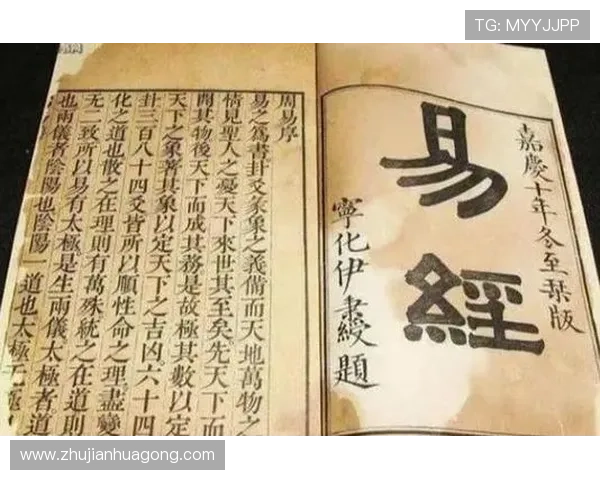 TG: MYYJJPP
嘉慶十年冬至琹版
易經
寧化伊秉綬題
周易序
易之爲書卦爻彖象之義備而天地萬物之
情見聖人之憂天下來世其至矣先天下而
開其物後天下而成其務是故極其數以定
天下之象著其象以定天下之吉凶六十四
卦三百八十四爻皆所以順性命之理盡變
化之道也散之在理則有萬殊統之在道則
无二致所以易有太極是生兩儀太極者道
也兩儀者陰陽也陰陽一道也太極无極
www.zhujianhuagong.com